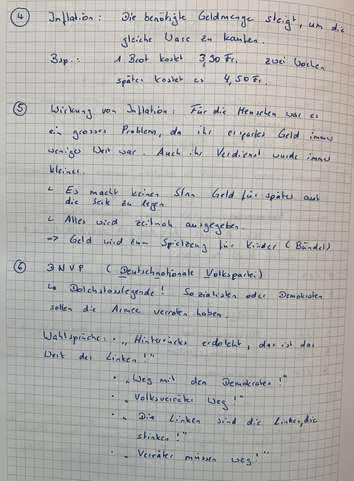 ④ Inflation : Die benötigte Geldmenge steigt, um die
gleiche Ware zu kaufen.
Bsp.: 1 Brot kostet 3,90 Fr. zwei Wochen
später kostet es 4,50 Fr.
⑤ Wirkung von Inflation : Für die Menschen war es
ein grosses Problem, da ihr erspartes Geld immer
weniger Wert war. Auch ihr Verdienst wurde immer
kleiner.
Es macht keinen Sinn Geld für später auf
die Seite zu legen
Alles wird zeitnah ausgegeben.
=> Geld wird zum Spielzeug für Kinder (Bündel)
⑥ DNVP (Deutschnationale Volkspartei)
↳ Dolchstosslegende! Sozialisten oder Demokraten
sollen die Armee verraten haben.
Wahlsprüche: • „Hinterrücks erdolcht, das ist das
Werk der Linken!"
• „Weg mit den Demokraten!"
• „Volksverräter weg!"
• „Die Linken sind die Linken, die
stinken!"
• „Verräter müssen weg!"